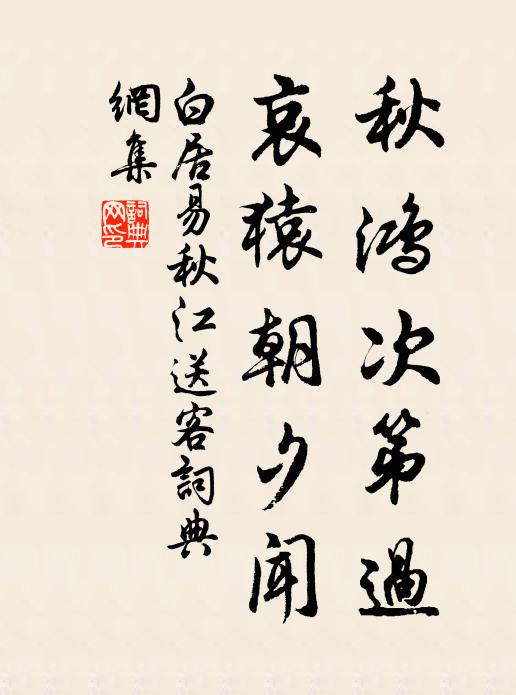 秋鴻次第過
哀猿朝夕聞
白居易秋江送客詞典
網集
詞典
网印